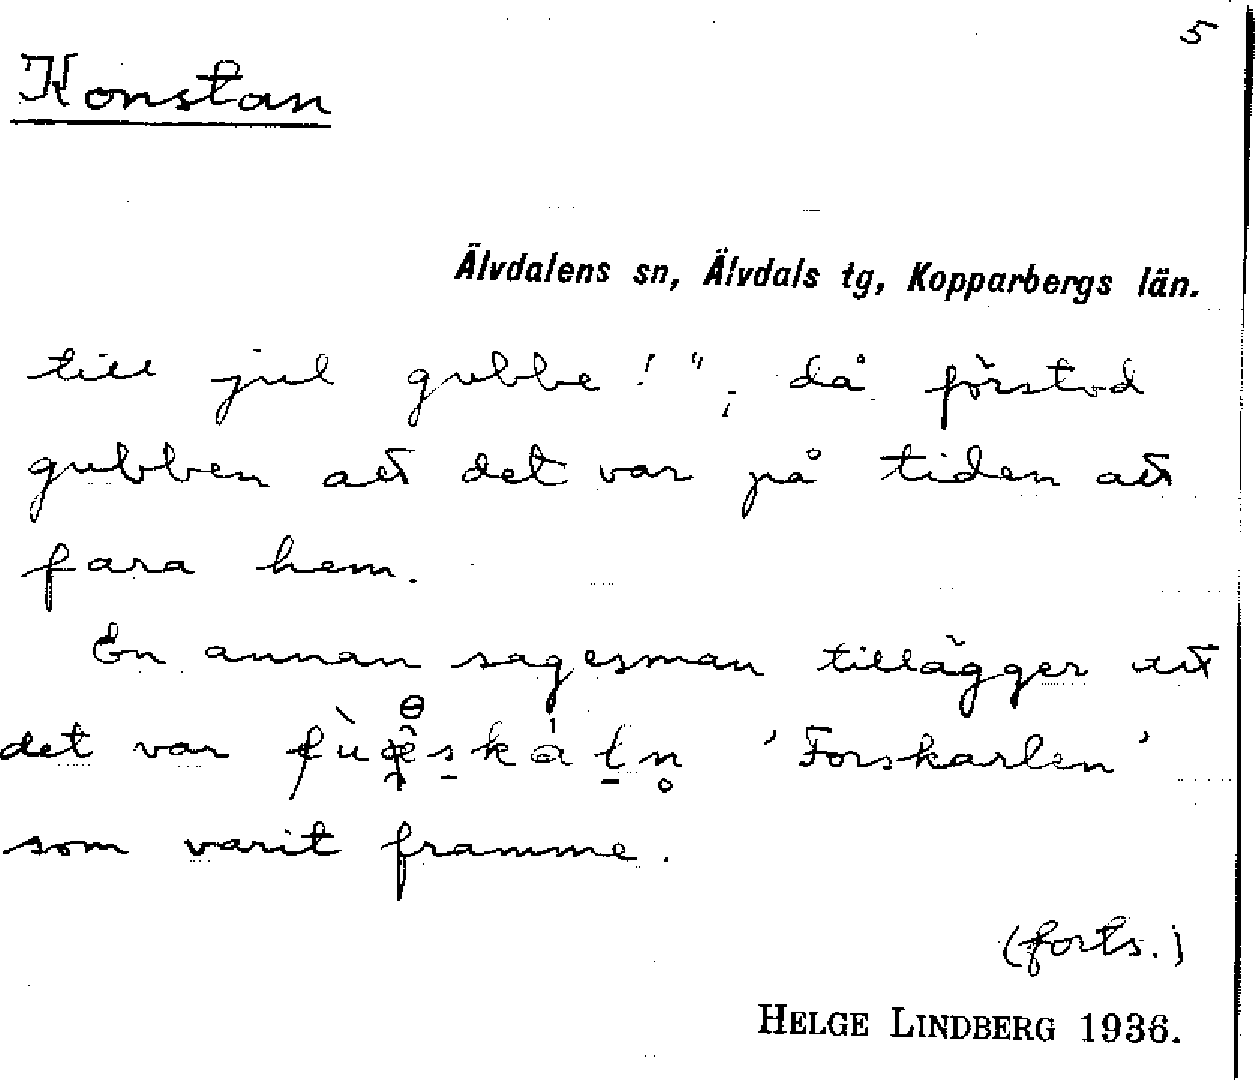 5
Konstan
Älvdalens sn, Älvdals tg, Kopparbergs län.
till jul gubbe!", då förstod
gubben att det var på tiden att
fara hem.
En annan sagesman tillägger att
det var 'Forskarlen'
som varit framme.
(forts.)
HELGE LINDBERG 1936.